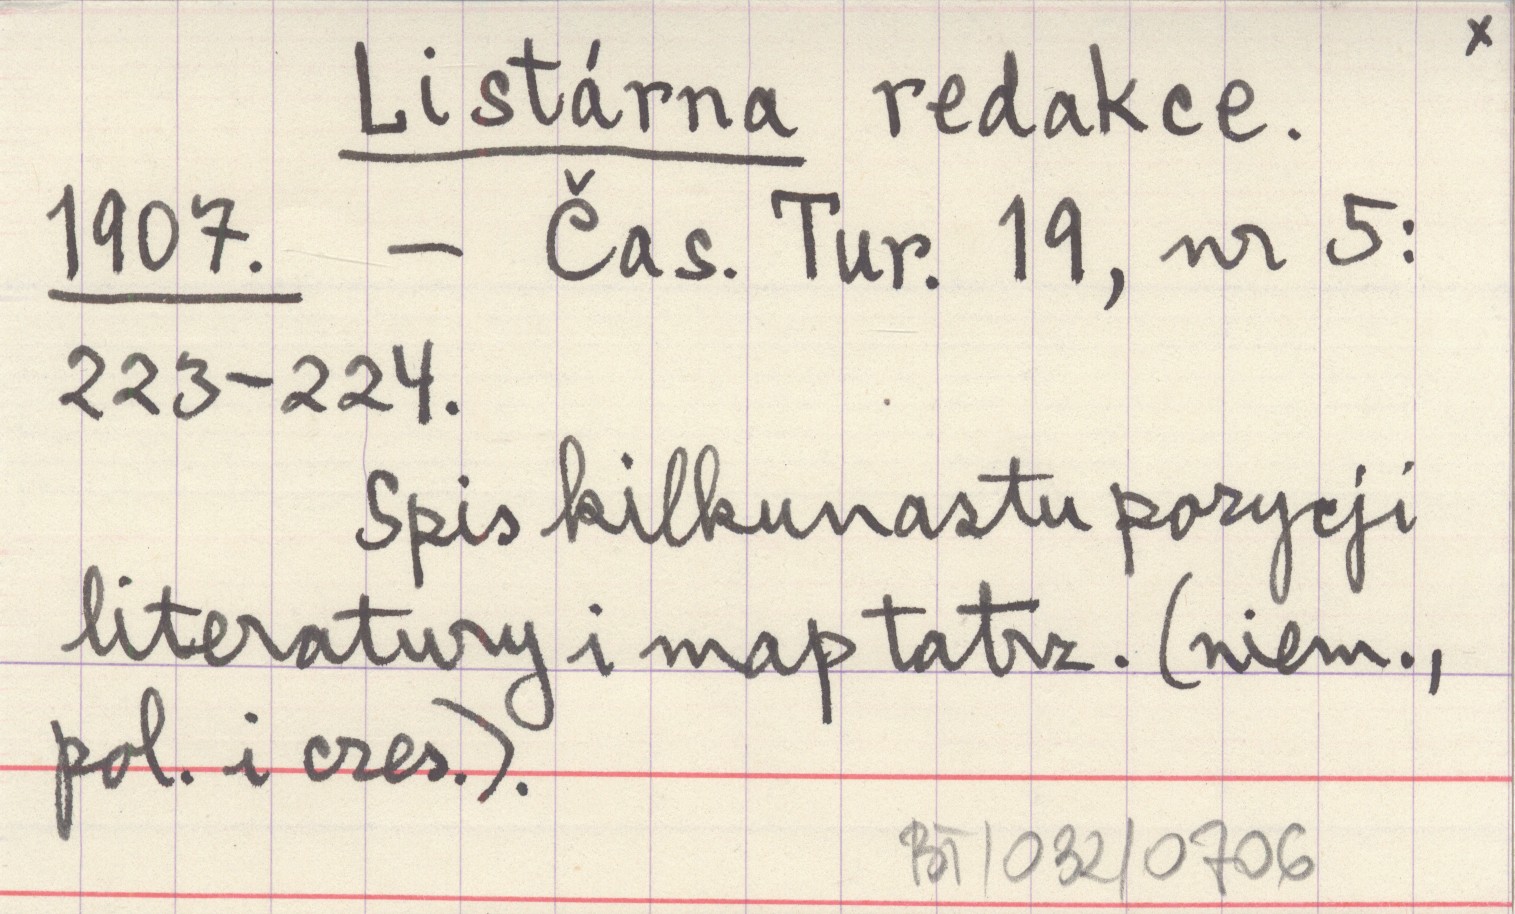 x
Listárna redakce.
1907. – Čas. Tur. 19, nr 5:
223–224.
Spis kilkunastu pozycji
literatury i map tatrz. (niem.,
pol. i czes.).
BT/032/0706